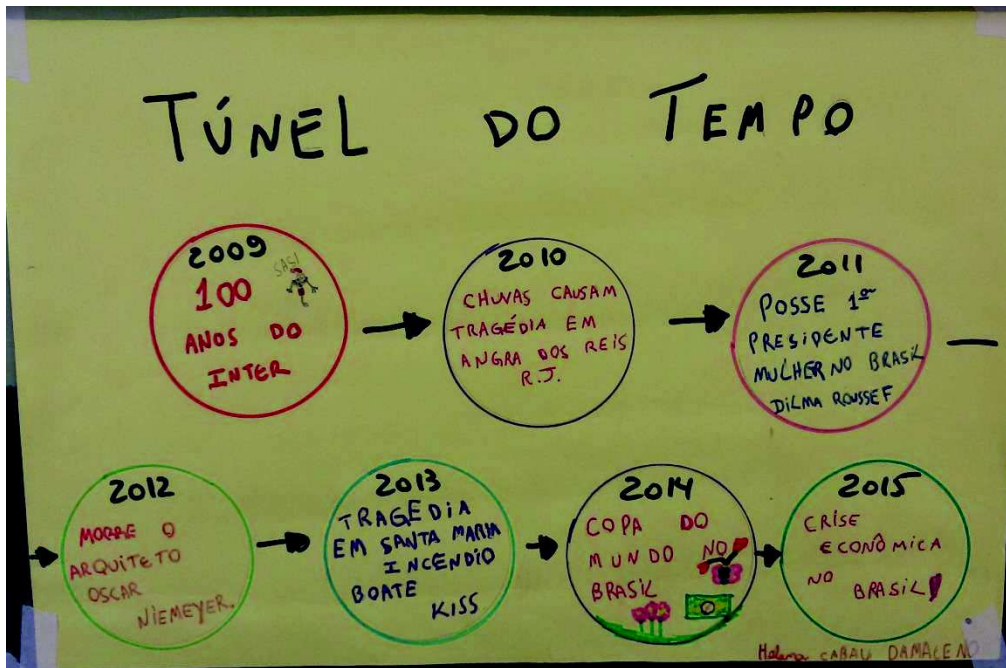 TÚNEL DO TEMPO
2009
SASI
100
ANOS DO
INTER
2010
CHUVAS CAUSAM
TRAGÉDIA EM
ANGRA DOS REIS
R.J.
2011
POSSE 1ª
PRESIDENTE
MULHER NO BRASIL
DILMA ROUSSEF
2012
MORRE O
ARQUITETO
OSCAR
NIEMEYER.
2013
TRAGÉDIA
EM SANTA MARIA
INCENDIO
BOATE
KISS
2014
COPA DO
MUNDO NO
BRASIL
2015
CRISE
ECONÔMICA
NO
BRASIL!
Helena DAMACENO